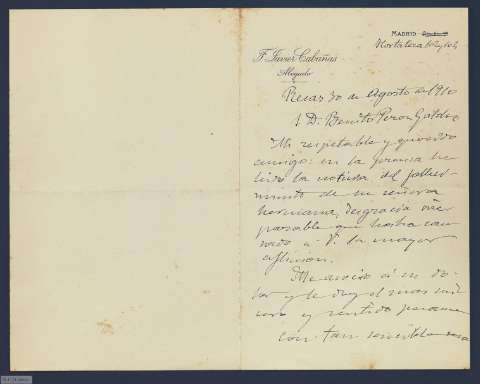 MADRID
Hortaleza
F. Javier Cabañas
Abogado
30 de Agosto de 1910
S. D. Benito Perez Galdos
Mi respetable y querido
amigo: en la prensa he
leido la noticia del falleci-
miento de su señora
hermana, desgracia irre
parable que habra cau
sado a V. la mayor
afliccion.
Me asocio á su do-
lor y le doy el mas sin
cero y sentido pesame
con tan sensible